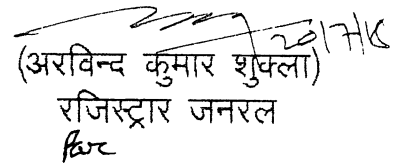 20/7/18
(अरविन्द कुमार शुक्ला)
रजिस्ट्रार जनरल